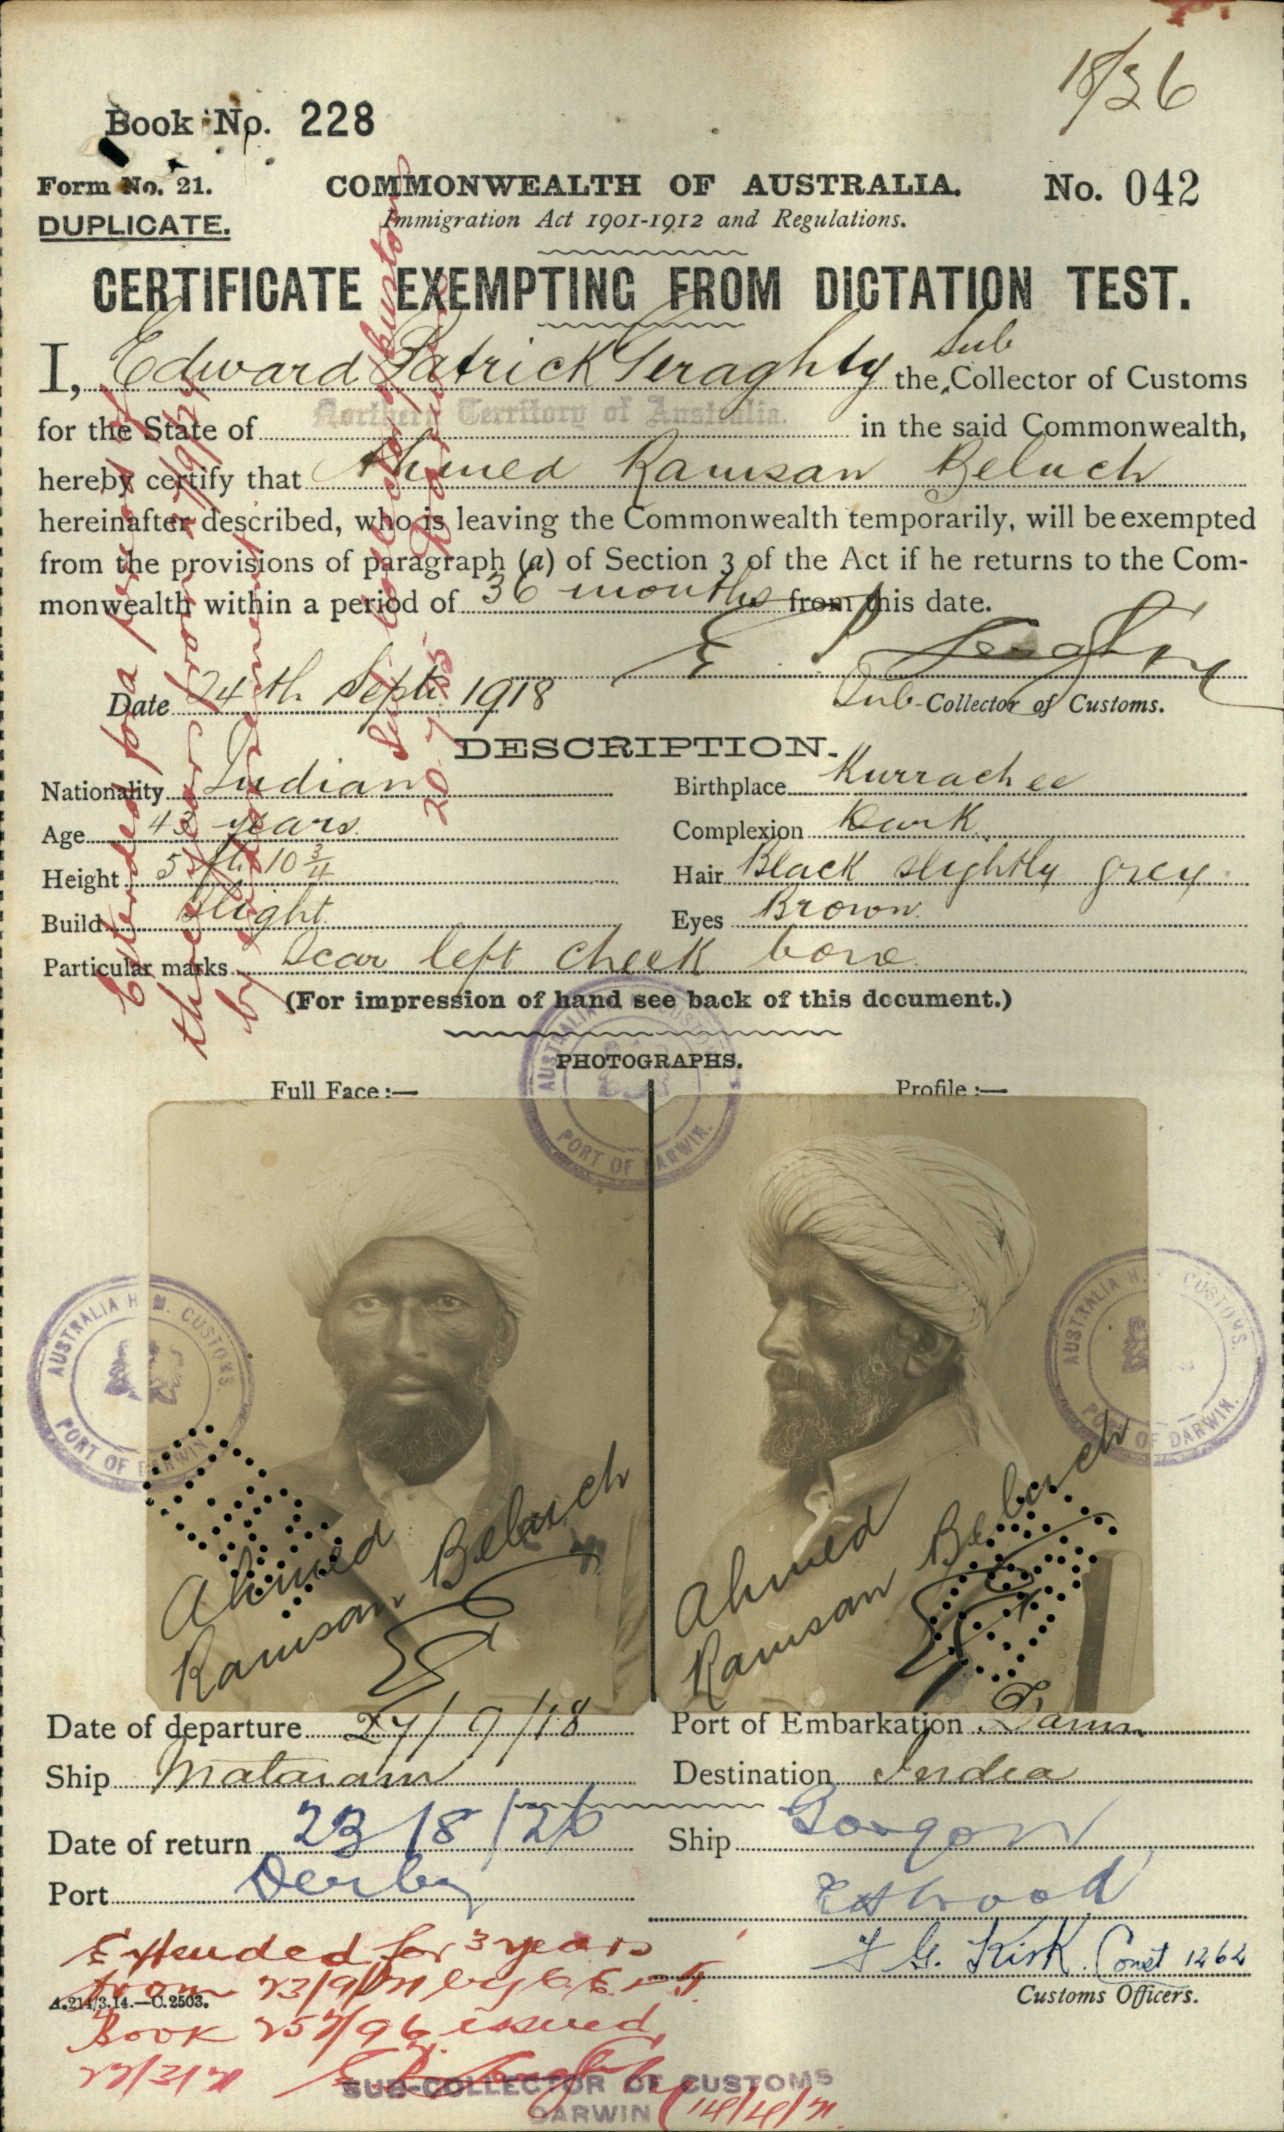 18/36
Book No. 228
Form No. 21.
DUPLICATE.
COMMONWEALTH OF AUSTRALIA.
No. 042
Immigration Act 1901-1912 and Regulations.
CERTIFICATE EXEMPTING FROM DICTATION TEST.
I, Edward Patrick Geraghty the Sub Collector of Customs
for the State of Northern Territory of Australia. in the said Commonwealth,
hereby certify that Ahmed Ramsan Beluch
hereinafter described, who is leaving the Commonwealth temporarily, will be exempted
from the provisions of paragraph (a) of Section 3 of the Act if he returns to the Com-
monwealth within a period of 36 months from this date.
E P Geraghty
Date 24th Sept. 1918
Sub-Collector of Customs.
Extended for a period of
three years from /9/24
by
Sub Collector of Customs
20 7 25
DESCRIPTION.
Nationality Indian
Birthplace Kurrachee
Age 43 years
Complexion Dark
Height 5 ft. 10 3/4
Hair Black slightly grey
Build Slight
Eyes Brown
Particular marks Scar left cheek bone
(For impression of hand see back of this document.)
PHOTOGRAPHS.
Full Face :—
Profile :—
AUSTRALIA H.M. CUSTOMS. PORT OF DARWIN.
AUSTRALIA H.M. CUSTOMS. PORT OF DARWIN.
AUSTRALIA H.M. CUSTOMS. PORT OF DARWIN.
Ahmed
Ramsan Beluch
Ahmed
Ramsan Beluch
Date of departure 27/9/18
Port of Embarkation Darwin
Ship Mataram
Destination India
Date of return 23/8/26
Ship Gorgon
Port Derby
F G. Kirk. Const 1262
Customs Officers.
Extended for 3 years
from 23/9/21 by C.E.D.T.
A.214/3.14.—C.2503.
Book 257/96 issued
SUB-COLLECTOR OF CUSTOMS
DARWIN 14/4/21